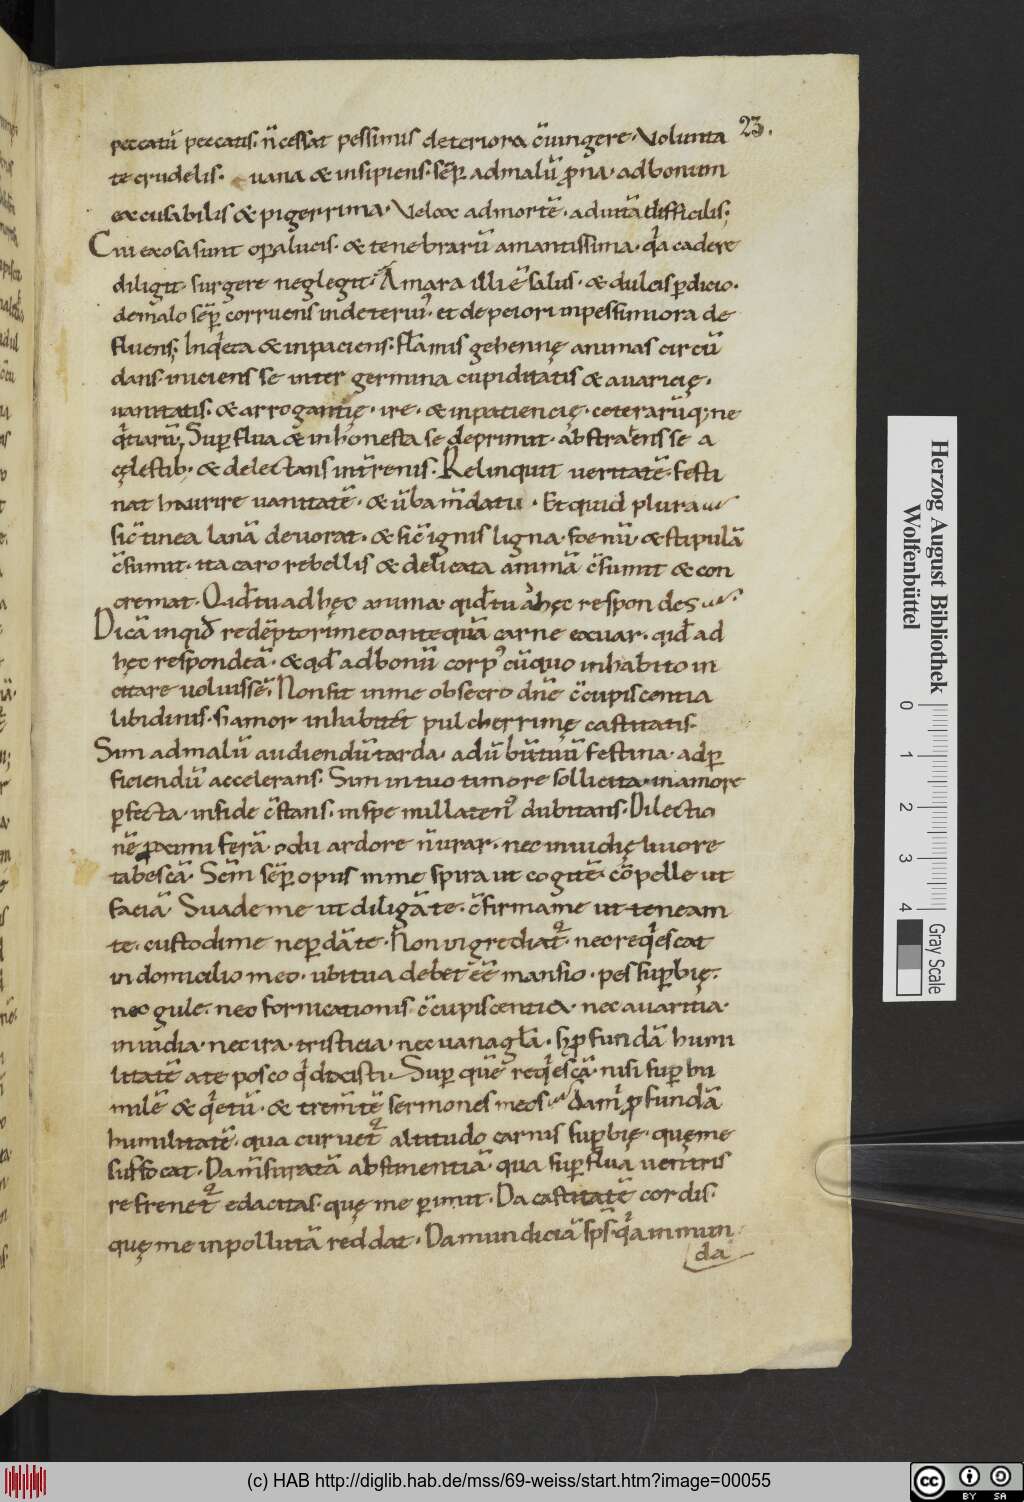 23.
peccatū peccatis. n̄ cessat pessimis deteriora c̄iungere. Volunta
te crudelis. uana & insipiens. sēp ad malū p̱na. ad bonum
excusabilis & pigerrima. Velox ad mortē. ad uitā difficilis;
Cui exosa sunt oꝑa lucis. & tenebrarū amantissima. q̇a cadere
diligit surgere neglegit. Amara illi ē salus. & dulcis ꝑdicio.
de malo sēp corruens in deteriꝰ. et de peiori in pessimiora de
fluens; Inq̇eta & inpaciens. flāmis gehennę animas circū
dans. iniciens se inter germina cupiditatis & auaricię.
uanitatis. & arrogantię. ire. & inpaciencię. ceterarūq; ne
q̇tiarū; Suꝑflua & inhonesta se deprimit. abstraens se a
cęlestib; & delectans in t̄renis. Relinquit ueritatē. festi
nat haurire uanitatē. & ūba m̄datii. Et quid plura
sic̄ tinea lanā deuorat. & sic̄ ignis ligna. foenū. & stipulā
c̄sumit. ita caro rebellis & delicata animā c̄sumit & con
cremat. Qid tu ad hęc anima. qid tu ad hęc respondes
Dicā inqid redēptori meo antequā carne exuar. qid ad
hęc respondeā. & qd ad bonū corpꝰ cū quo inhabito in
citare uoluissē. Non sit in me obsecro dn̄e c̄cupiscentia
libidinis. s; amor inhabitet pulcherrimę castitatis.
Sim ad malū audiendū tarda. ad ūbū tuū festina. ad ꝑ
ficiendū accelerans. Sim in tuo timore sollicita. in amore
ꝑfecta. in fide c̄stans. in spe nullatenꝰ dubitans. Dilectio
nē proximi ferā. odii ardore n̄ urar. nec inuidię liuore
tabescā. Sc̄m sēp opus in me spira ut cogitē. cōpelle ut
faciā Suade me ut diligā te. c̄firma me ut teneam
te. custodi me ne ꝑdā te. Non īgrediat̃. nec req̇escat
in domicilio meo. ubi tua debet eē mansio. pes suꝑbię.
nec gule. nec fornicationis c̄cupiscentia. nec auaritia.
inuidia. nec ira. tristicia. nec uana gl̄a. s; ꝓfundā humi
litatē a te posco q̇ dixisti. Suꝑ quē req̇escā. nisi suꝑ hu
milē & q̇etū. & tremētē sermones meos. Da m̍ ꝓfundā
humilitatē. qua curuet̃ altitudo carnis suꝑbię. quę me
suffocat. Da mensuratā abstinentiā. qua suꝑflua uentris
refrenet̃ edacitas. quę me ꝑimit. Da castitatē cordis.
quę me inpollutā reddat. Da mundiciā sp̄s. q̇a inmun
da
Herzog August Bibliothek
Wolfenbüttel
0 1 2 3 4
Gray Scale
(c) HAB http://diglib.hab.de/mss/69-weiss/start.htm?image=00055
cc
BY SA